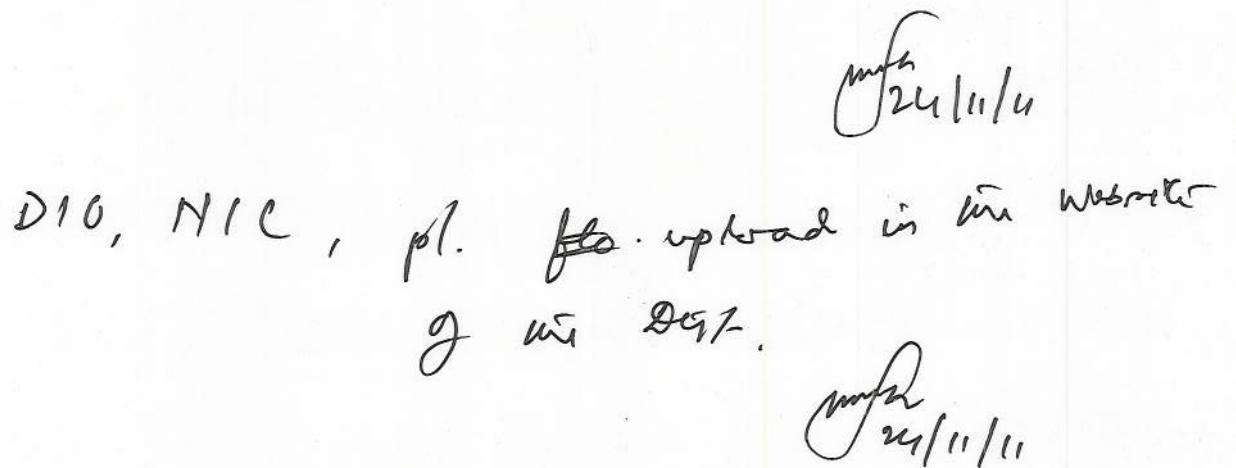 24/11/11
DIO, NIC, pl. upload in the website
of the Distt.
24/11/11